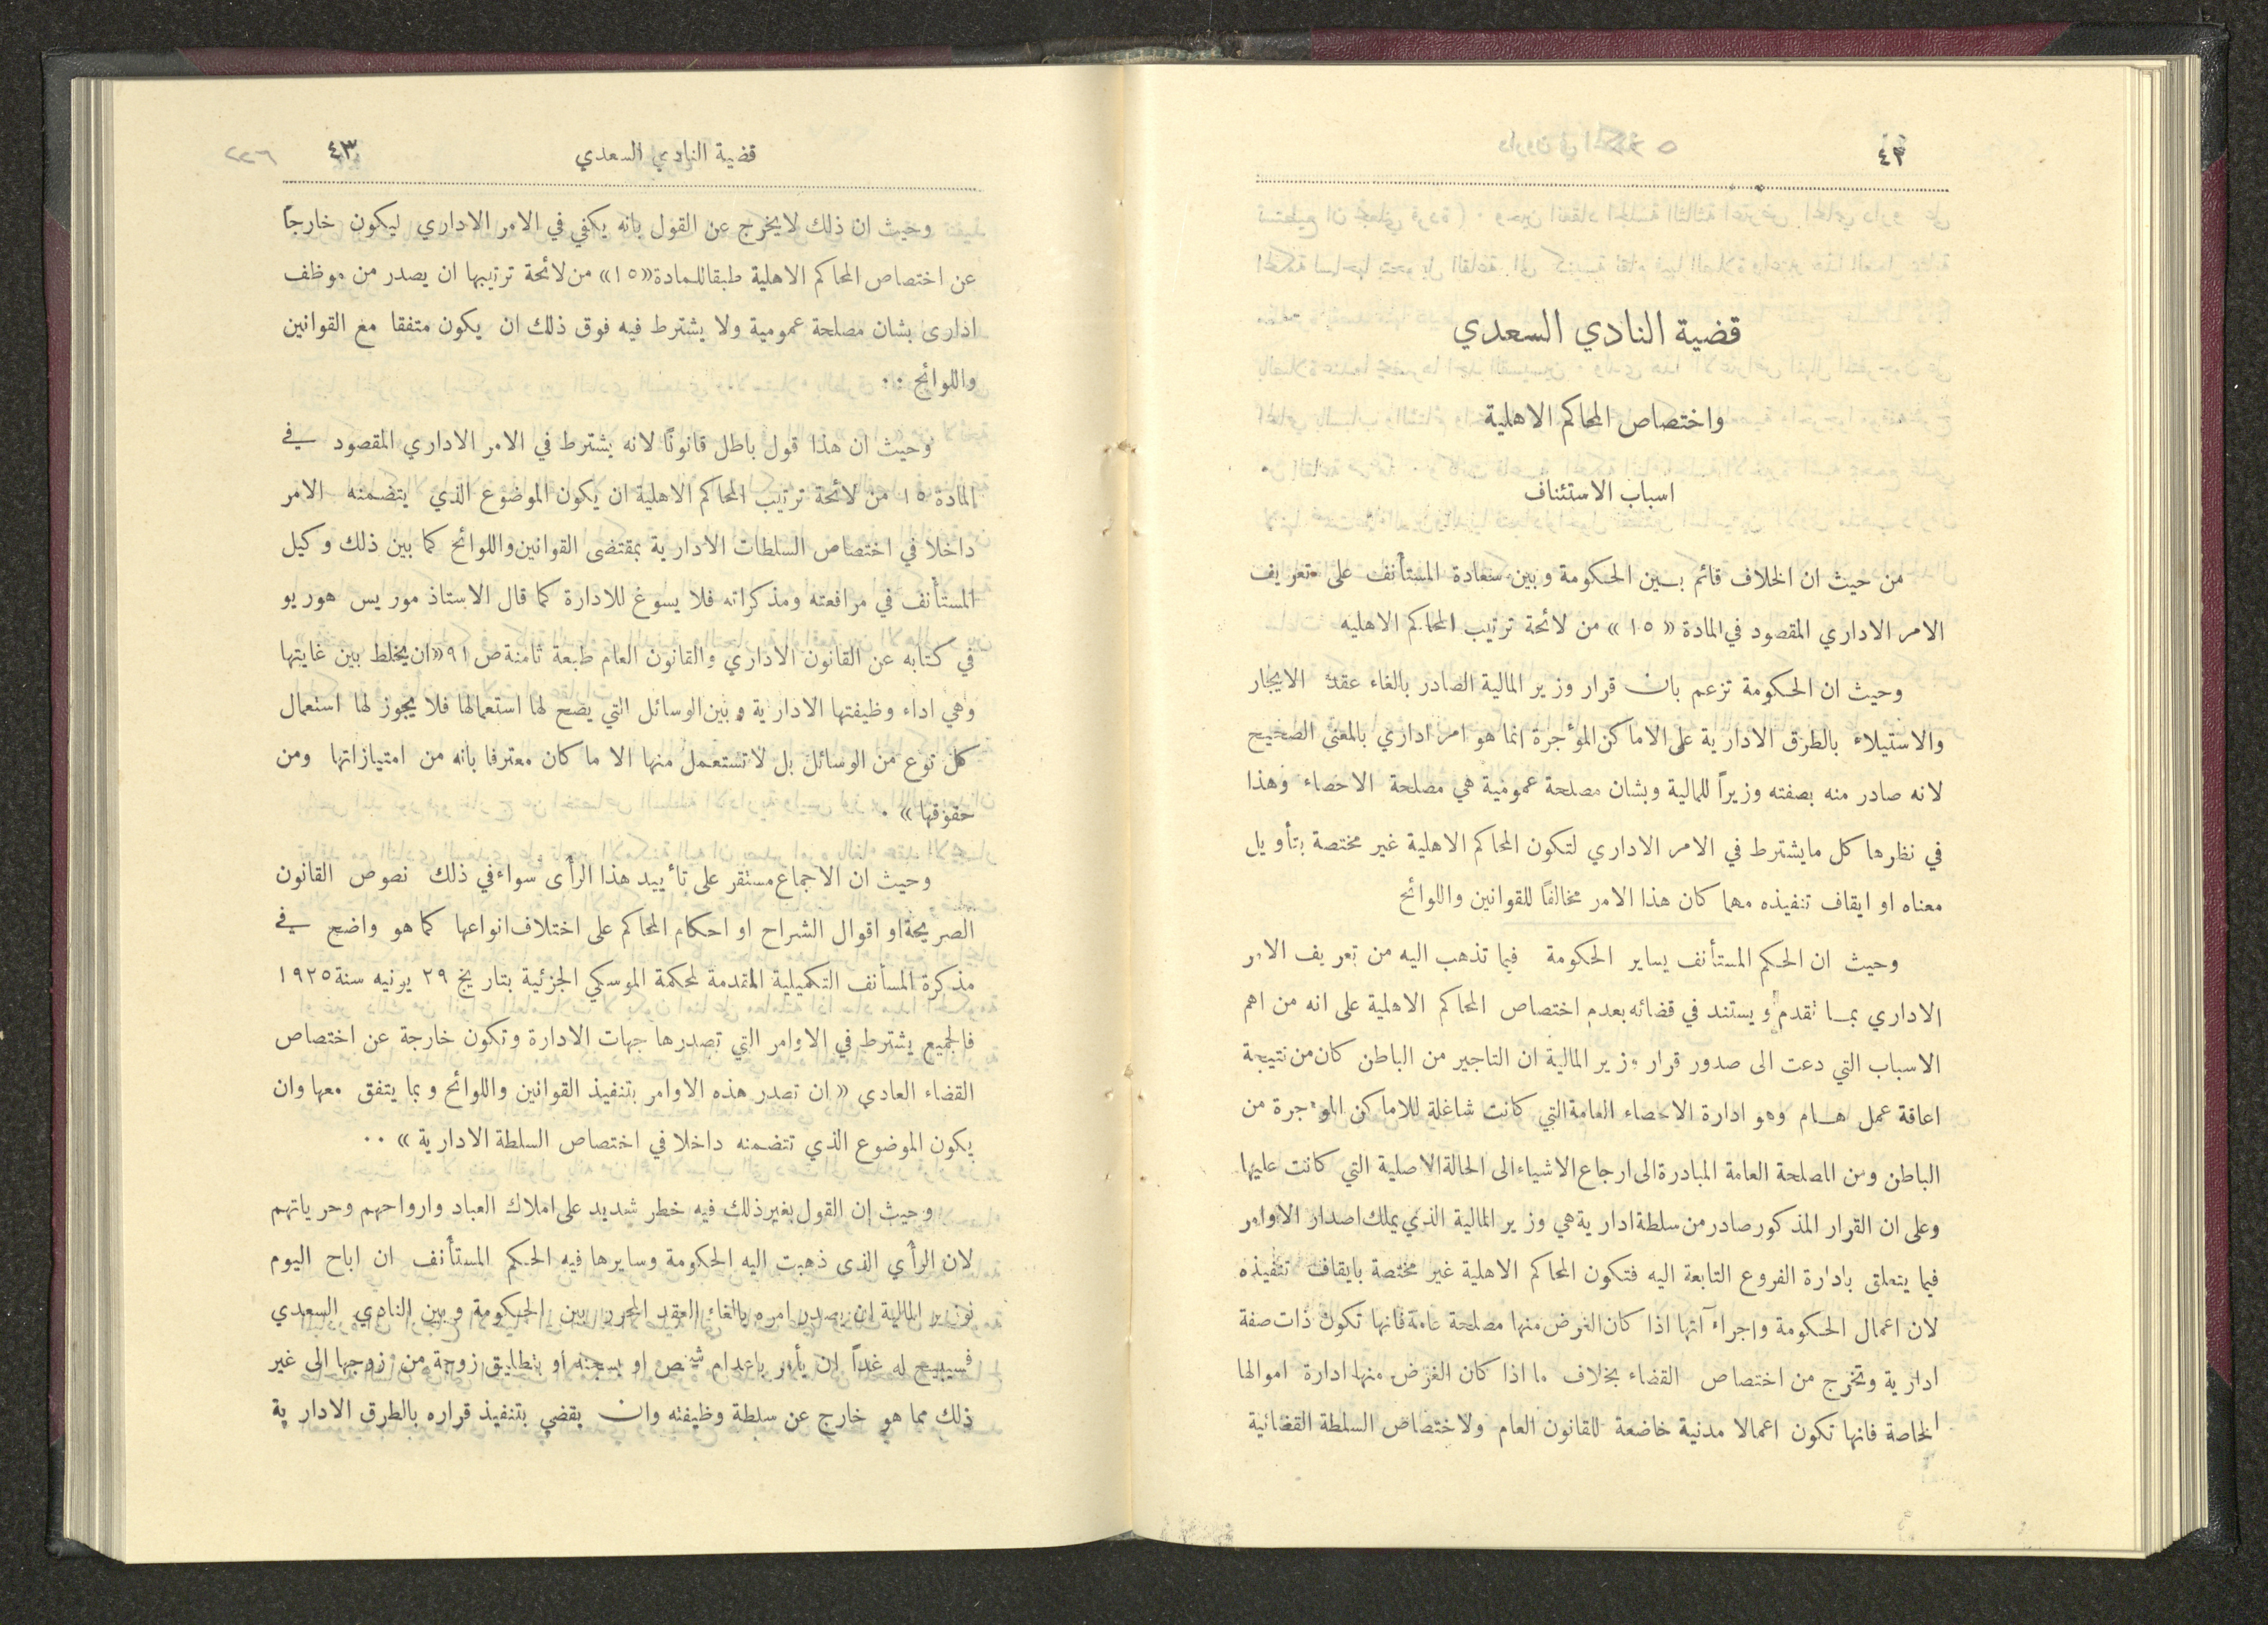 ٤٢
قضية النادي السعدي
واختصاص المحاكم الاهلية
اسباب الاستئناف
من حيث ان الخلاف قائم بين الحكومة وبين سعادة المستأنف على تعريف
الامر الاداري المقصود في المادة « ١٥ » من لائحة ترتيب المحاكم الاهليه
وحيث ان الحكومة تزعم بان قرار وزير المالية الصادر بالغاء عقد الايجار
والاستيلاء بالطرق الادارية على الاماكن المؤجرة انما هو امر اداري بالمعنى الصحيح
لانه صادر منه بصفته وزيراً للمالية وبشان مصلحة عمومية هي مصلحة الاحصاء وهذا
في نظرها كل مايشترط في الامر الاداري لتكون المحاكم الاهلية غير مختصة بتأويل
معناه او ايقاف تنفيذه مهما كان هذا الامر مخالفًا للقوانين واللوائح
وحيث ان الحكم المستأنف يساير الحكومة فيما تذهب اليه من تعريف الامر
الاداري بما تقدم ويستند في قضائه بعدم اختصاص المحاكم الاهلية على انه من اهم
الاسباب التي دعت الى صدور قرار وزير المالية ان التاجير من الباطن كان من نتيجة
اعاقة عمل هام وهو ادارة الاحصاء العامة التي كانت شاغلة للاماكن المؤجرة من
الباطن ومن المصلحة العامة المبادرة الى ارجاع الاشياء الى الحالة الاصلية التي كانت عليها
وعلى ان القرار المذكور صادر من سلطة ادارية هي وزير المالية الذي يملك اصدار الاوامر
فيما يتعلق بادارة الفروع التابعة اليه فتكون المحاكم الاهلية غير مختصة بايقاف تنفيذه
لان اعمال الحكومة واجراء آتها اذا كان الغرض منها مصلحة عامة فانها تكون ذات صفة
ادارية وتخرج من اختصاص القضاء بخلاف ما اذا كان الغرض منها ادارة اموالها
الخاصة فانها تكون اعمالا مدنية خاضعة للقانون العام ولاختصاص السلطة القضائية
قضية النادي السعدي
٤٣
وحيث ان ذلك لايخرج عن القول بانه يكفي في الامر الاداري ليكون خارجاً
عن اختصاص المحاكم الاهلية طبقا للمادة «١٥» من لائحة ترتيبها ان يصدر من موظف
ادارى بشان مصلحة عمومية ولا يشترط فيه فوق ذلك ان يكون متفقا مع القوانين
واللوائح ..
وحيث ان هذا قول باطل قانونًا لانه يشترط في الامر الاداري المقصود في
المادة ١٥ من لائحة ترتيب المحاكم الاهلية ان يكون الموضوع الذي يتضمنه الامر
داخلا في اختصاص السلطات الادارية بمقتضى القوانين واللوائح كما بين ذلك وكيل
المستأنف في مرافعته ومذكراته فلا يسوغ للادارة كما قال الاستاذ موريس هوريو
في كتابه عن القانون الاداري والقانون العام طبعة ثامنة ص ٩١ «ان يخلط بين غايتها
وهي اداء وظيفتها الادارية وبين الوسائل التي يصح لها استعمالها فلا يجوز لها استعمال
كل نوع من الوسائل بل لا تستعمل منها الا ما كان معترفا بانه من امتيازاتها ومن
حقوقها » .
وحيث ان الاجماع مستقر على تأييد هذا الرأى سواء في ذلك نصوص القانون
الصريحة او اقوال الشراح او احكام المحاكم على اختلاف انواعها كما هو واضح في
مذكرة المسأنف التكميلية المقدمة لمحكمة الموسكي الجزئية بتاريخ ٢٩ يونيه سنة ١٩٢٥
فالجميع يشترط في الاوامر التي تصدرها جهات الادارة وتكون خارجة عن اختصاص
القضاء العادي « ان تصدر هذه الاوامر بتنفيذ القوانين واللوائح وبما يتفق معها وان
يكون الموضوع الذي تتضمنه داخلا في اختصاص السلطة الادارية » ..
وحيث إن القول بغير ذلك فيه خطر شديد على املاك العباد وارواحهم وحرياتهم
لان الرأي الذى ذهبت اليه الحكومة وسايرها فيه الحكم المستأنف ان اباح اليوم
لوزير المالية ان يصدر امره بالغاء العقد المحرر بين الحكومة وبين النادي السعدي
فسيبيح له غداً ان يأمر باعدام شخص او بسجنه او بتطليق زوجة من زوجها الى غير
ذلك مما هو خارج عن سلطة وظيفته وان يقضي بتنفيذ قراره بالطرق الادارية